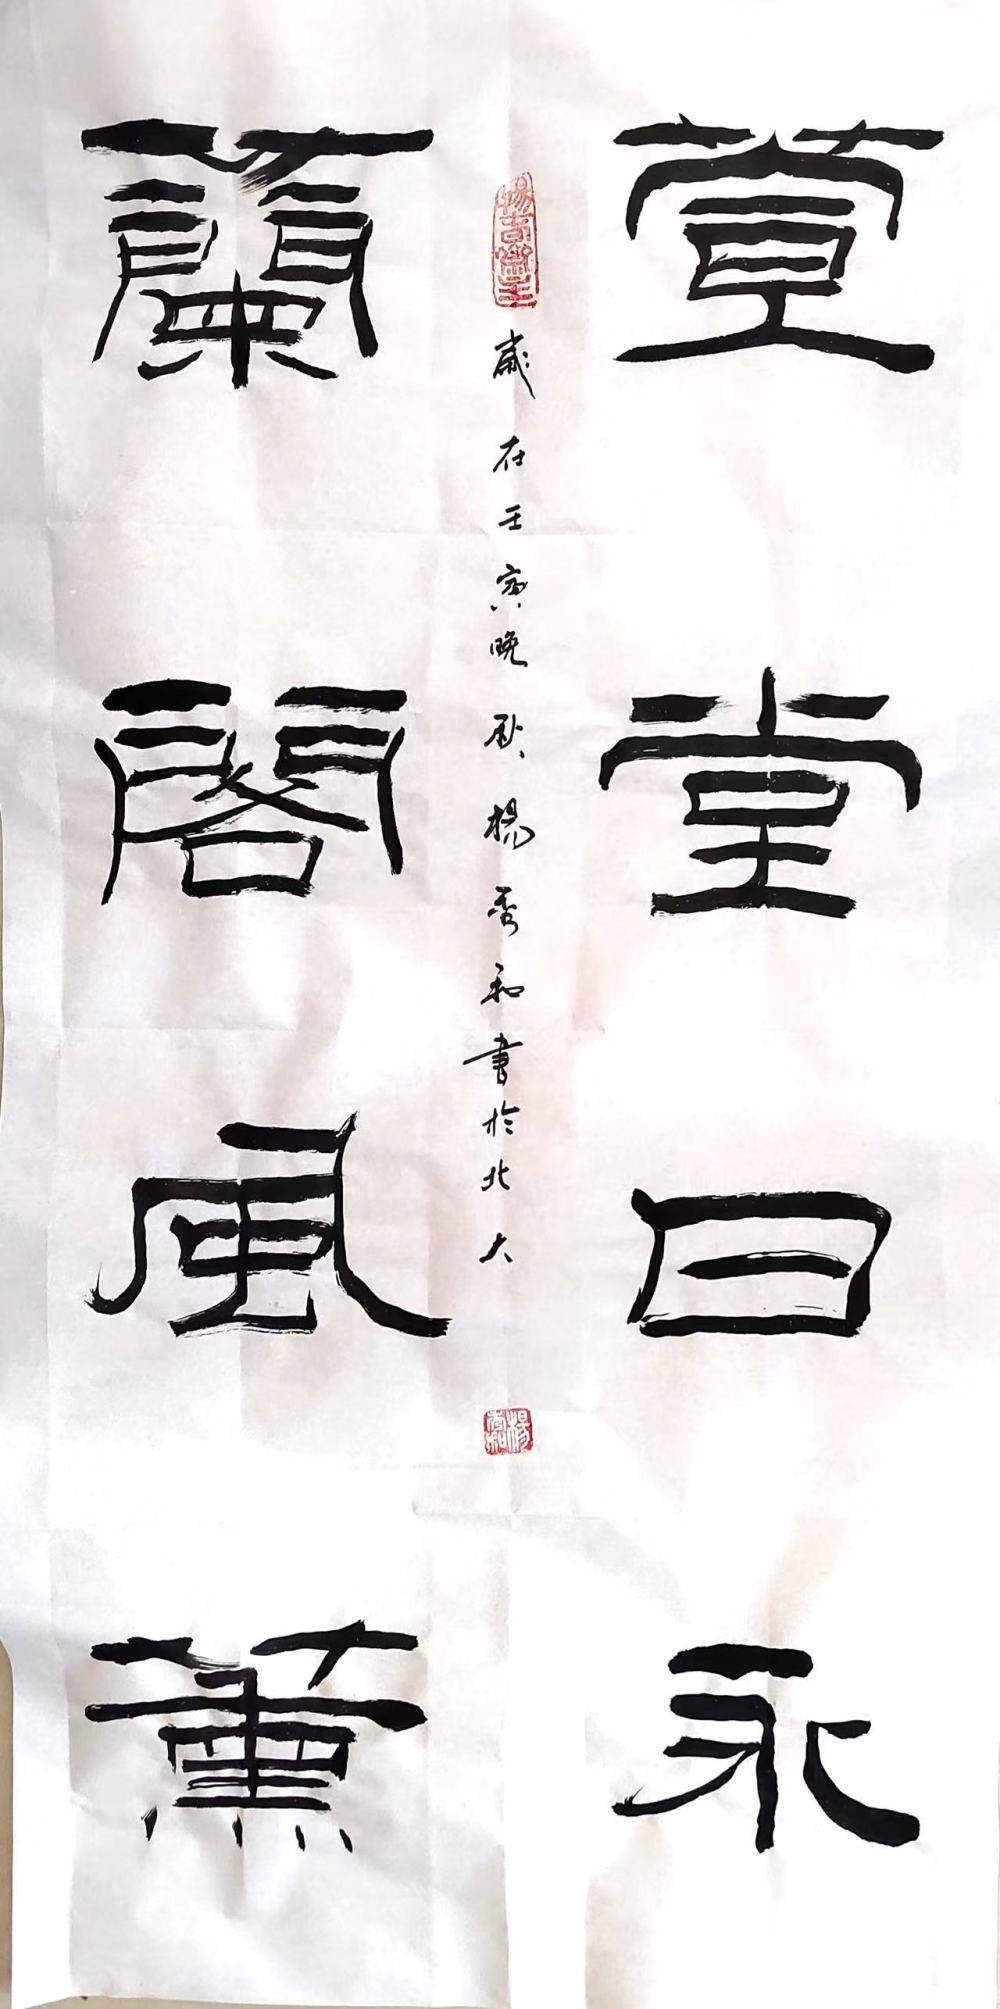 萱堂日永
歲在壬寅晚秋楊秀和書於北大
楊秀和
蘭閣風薰